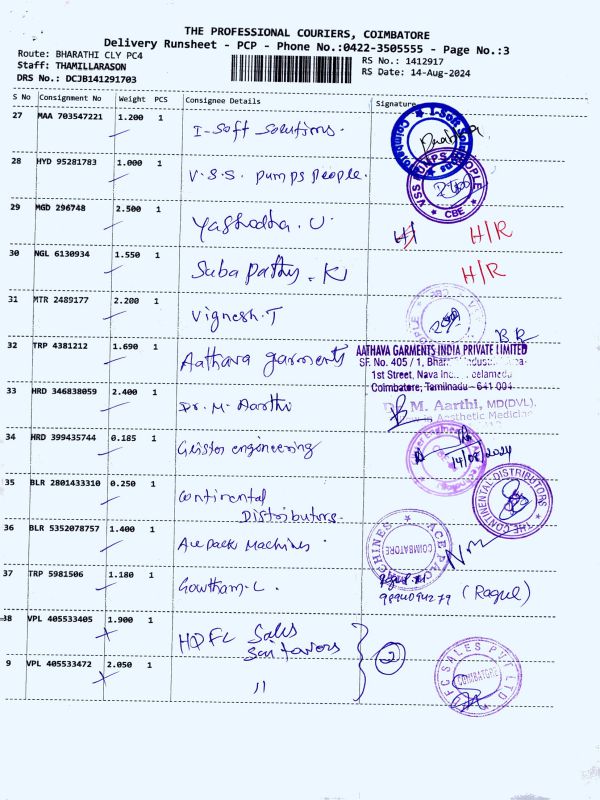 THE PROFESSIONAL COURIERS, COIMBATORE
Delivery Runsheet - PCP - Phone No.:0422-3505555 - Page No.:3
Route: BHARATHI CLY PC4
Staff: THAMILLARASON
DRS No.: DCJB141291703
RS No.: 1412917
RS Date: 14-Aug-2024
S No Consignment No Weight PCS Consignee Details Signature
27 MAA 703547221 1.200 1 I-Soft Solutions.
28 HYD 95281783 1.000 1 V.S.S. Pumps People.
VSS PUMPS PEOPLE * CBE *
29 MGD 296748 2.500 1 Yashodha. U. H/R
30 NGL 6130934 1.550 1 Saba Pathy. K H/R
31 MTR 2489177 2.200 1 Vignesh.T
32 TRP 4381212 1.690 1 Aathava garments
AATHAVA GARMENTS INDIA PRIVATE LIMITED
SF. No. 405 / 1,
1st Street, Nava
Coimbatore, Tamilnadu - 641 004
33 HRD 346838059 2.400 1 Dr. M. Aarthi
M. Aarthi, MD(DVL).
Aesthetic Medicine
34 HRD 399435744 0.185 1 engineering
14/08/2024
35 BLR 2801433310 0.250 1 Continental
Distributors.
* THE CONTINENTAL DISTRIBUTORS
36 BLR 5352078757 1.400 1 Ace pack Machines.
COIMBATORE
37 TRP 5981506 1.180 1 Gowtham.L.
(Ragul)
38 VPL 405533405 1.900 HDFC Sales
2
9 VPL 405533472 2.050 1 11
FC SALES PVT LTD
COIMBATORE